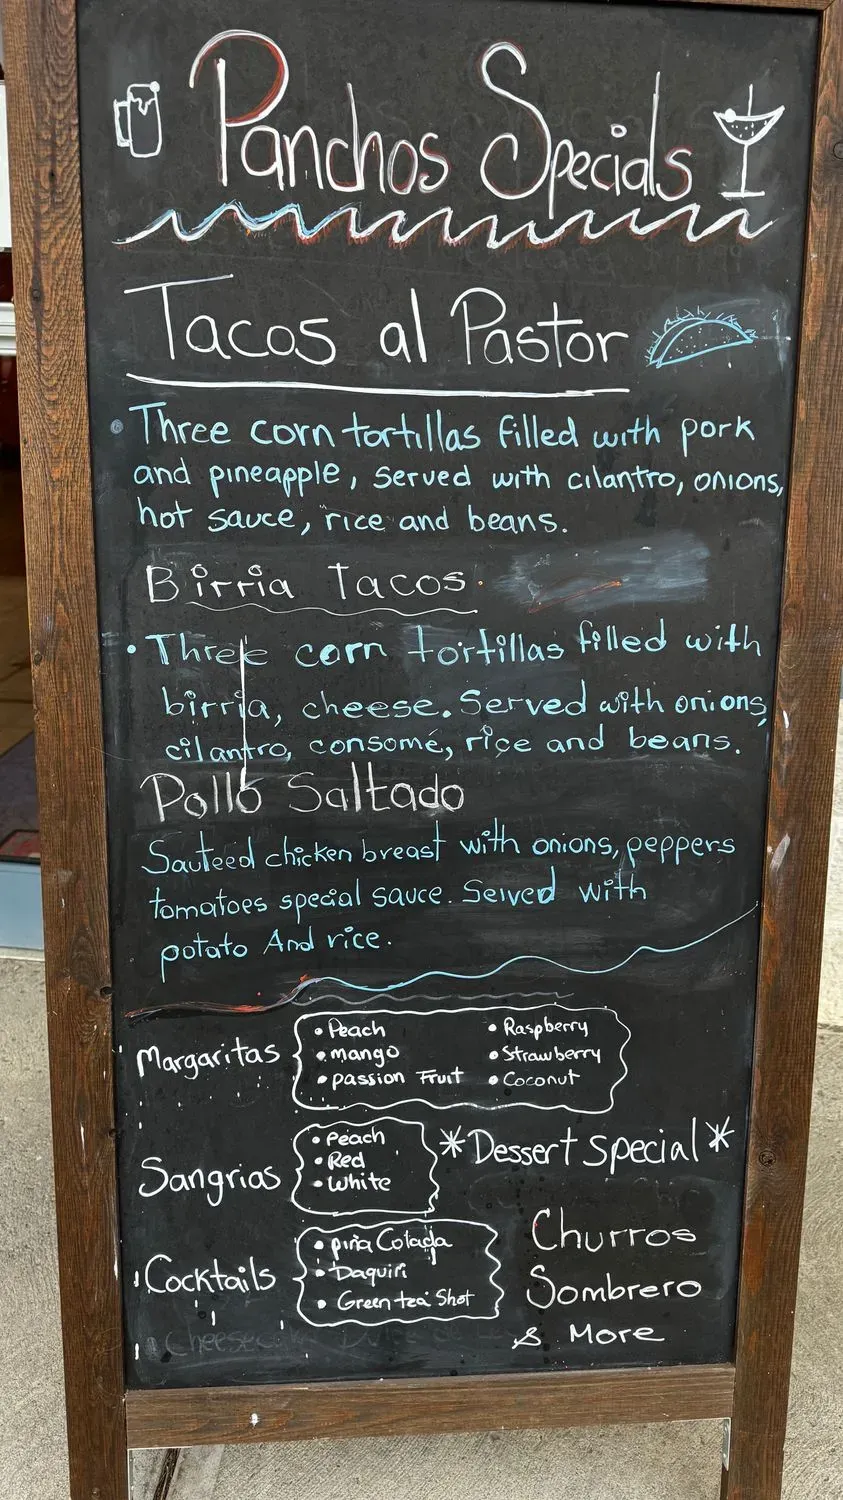 Panchos Specials
Tacos al Pastor
• Three corn tortillas filled with pork
and pineapple, served with cilantro, onions,
hot sauce, rice and beans.
Birria Tacos
• Three corn tortillas filled with
birria, cheese. Served with onions,
cilantro, consomé, rice and beans.
Pollo Saltado
Sauteed chicken breast with onions, peppers
tomatoes special sauce. Served with
potato And rice.
Margaritas
• Peach
• mango
• passion Fruit
• Raspberry
• Strawberry
• Coconut
Sangrias
• Peach
• Red
• White
*Dessert special*
Churros
Sombrero
& More
Cocktails
• piña Colada
• Daquiri
• Green tea Shot